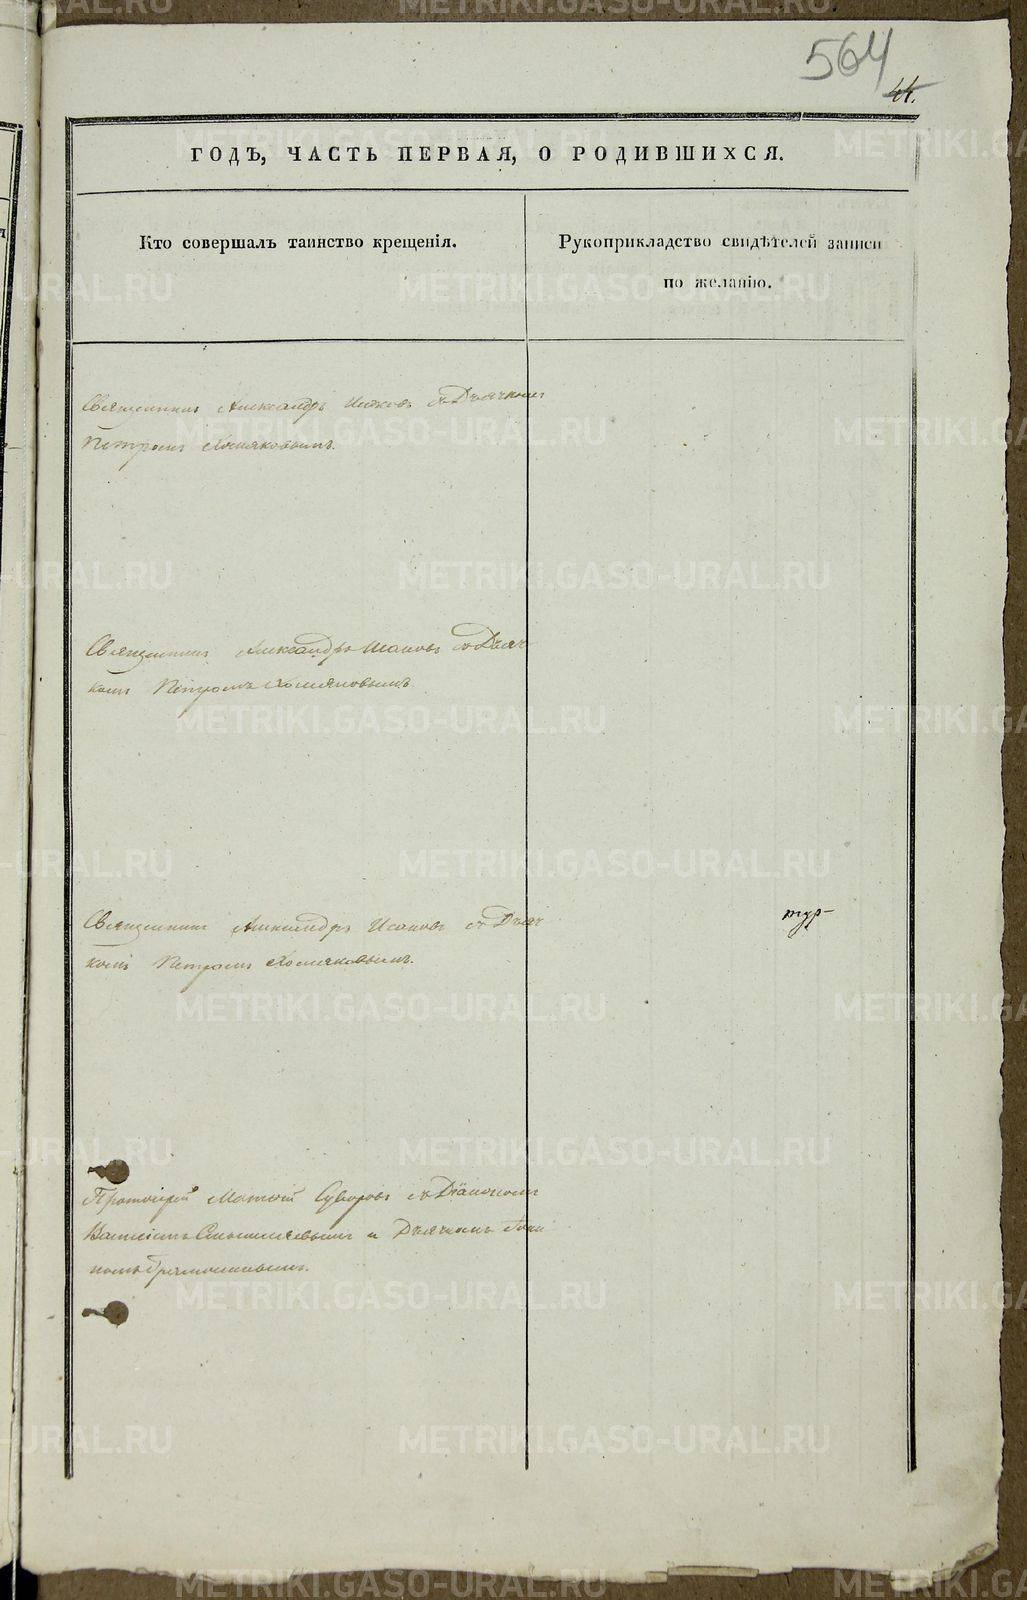 564
44.
ГОДЪ, ЧАСТЬ ПЕРВАЯ, О РОДИВШИХСЯ.
Кто совершалъ таинство крещенія.
Рукоприкладство свидѣтелей записи
по желанію.
Священникъ Александръ Исаковъ съ Дьячкомъ
Петромъ Хомяковымъ.
Священникъ Александръ Исаковъ съ Дьяч
комъ Петромъ Хомяковымъ
Священникъ Александръ Исаковъ съ Дьяч
комъ Петромъ Хомяковымъ.
тур-
Протоіерей Матвѣй Суворовъ съ Діакономъ
и Дьячкомъ
METRIKI.GASO-URAL.RU